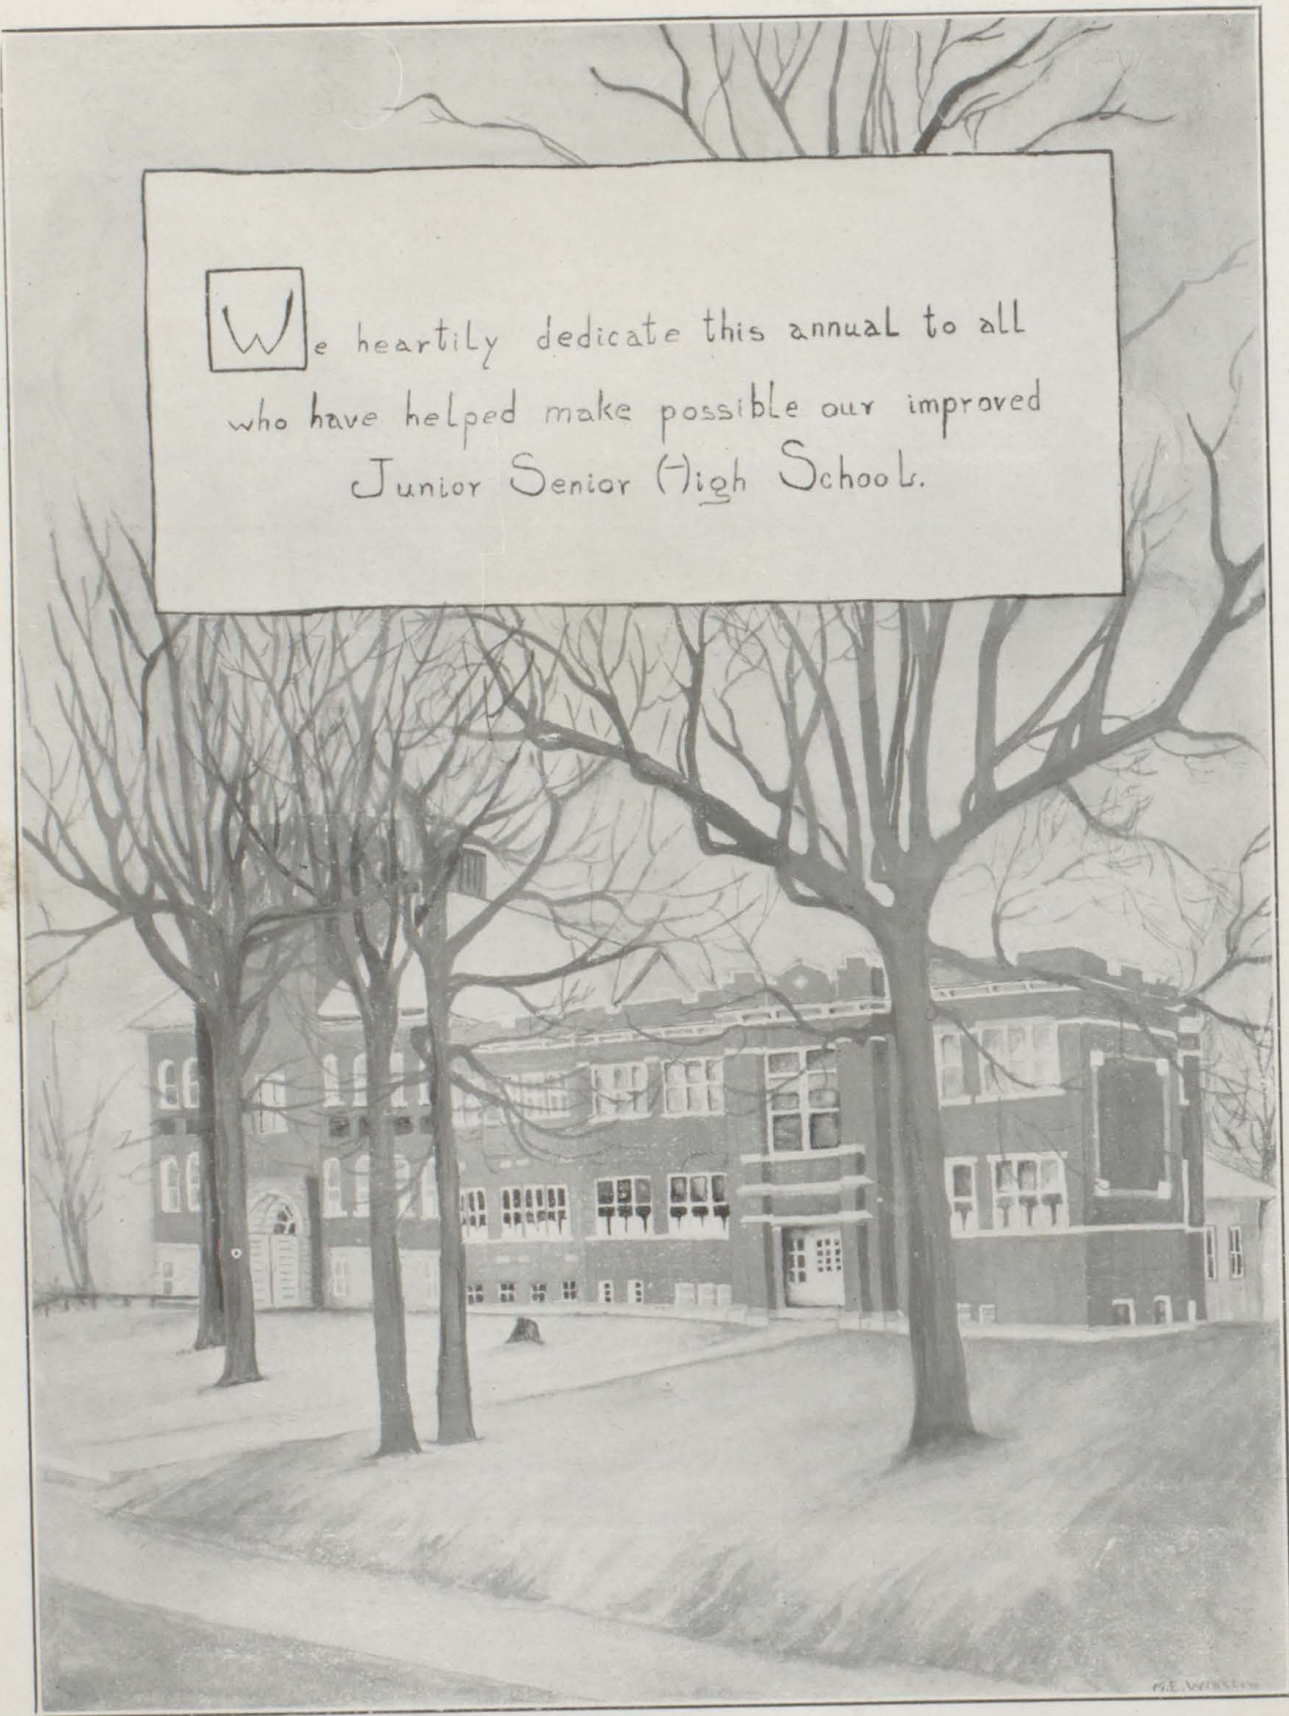 We heartily dedicate this annual to all
who have helped make possible our improved
Junior Senior High Schools.
M.E.